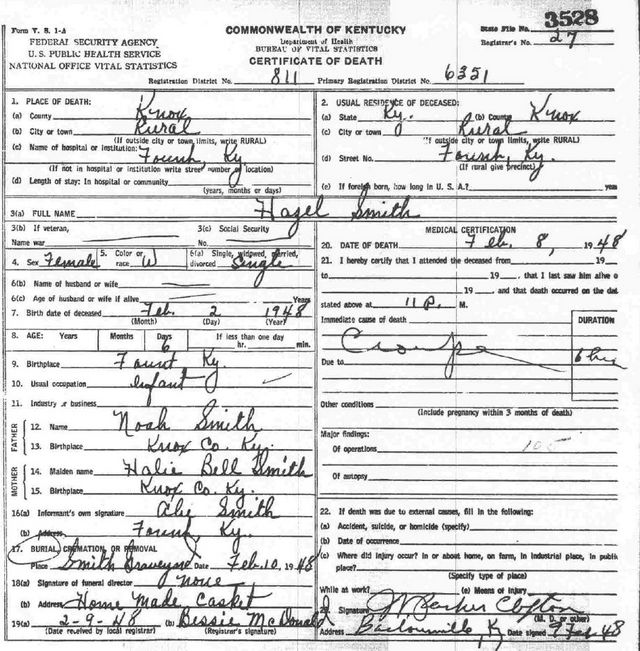 Form V. S. 1-A
FEDERAL SECURITY AGENCY
U. S. PUBLIC HEALTH SERVICE
NATIONAL OFFICE VITAL STATISTICS
COMMONWEALTH OF KENTUCKY
Department of Health
BUREAU OF VITAL STATISTICS
CERTIFICATE OF DEATH
3528
State File No.
Registrar's No. 27
Registration District No. 811 Primary Registration District No. 6351
1. PLACE OF DEATH:
(a) County Knox
(b) City or town Rural
(If outside city or town limits, write RURAL)
(c) Name of hospital or institution:
Ky.
(If not in hospital or institution write street number or location)
(d) Length of stay: In hospital or community
(years, months or days)
2. USUAL RESIDENCE OF DECEASED:
(a) State Ky. (b) County Knox
(c) City or town Rural
(If outside city or town limits, write RURAL)
(d) Street No. Ky.
(If rural give precinct)
(e) If foreign born, how long in U. S. A.? year
3(a) FULL NAME Hazel Smith
3(b) If veteran,
Name war
3(c) Social Security
No.
4. Sex Female 5. Color or race W 6(a) Single, widowed, married, divorced Single
6(b) Name of husband or wife
6(c) Age of husband or wife if alive Years
7. Birth date of deceased Feb. 2 1948
(Month) (Day) (Year)
8. AGE: Years Months Days If less than one day
6 hr. min.
9. Birthplace Ky.
10. Usual occupation Infant
11. Industry or business
FATHER
12. Name Noah Smith
13. Birthplace Knox Co. Ky.
MOTHER
14. Maiden name Halie Bell Smith
15. Birthplace Knox Co. Ky.
16(a) Informant's own signature Smith
(b) Address Ky.
17. BURIAL, CREMATION, OR REMOVAL
Place Smith Graveyard Date Feb. 10, 1948
18(a) Signature of funeral director none
(b) Address Home Made Casket
19(a) 2-9-48 (b) Bessie McDonald
(Date received by local registrar) (Registrar's signature)
MEDICAL CERTIFICATION
20. DATE OF DEATH Feb. 8, 1948
21. I hereby certify that I attended the deceased from 19
to 19 , that I last saw him alive o
19 , and that death occurred on the dat
stated above at 11 P. M.
Immediate cause of death
DURATION
Croupe
Due to
6 hrs
Other conditions
(Include pregnancy within 3 months of death)
Major findings:
Of operations
105
Of autopsy
22. If death was due to external causes, fill in the following:
(a) Accident, suicide, or homicide (specify)
(b) Date of occurrence
(c) Where did injury occur? In or about home, on farm, in industrial place, in public
place?
(Specify type of place)
While at work? (e) Means of injury
23. Signature
(M. D. or other)
Address Barbourville, Ky Date signed 9 Feb 48